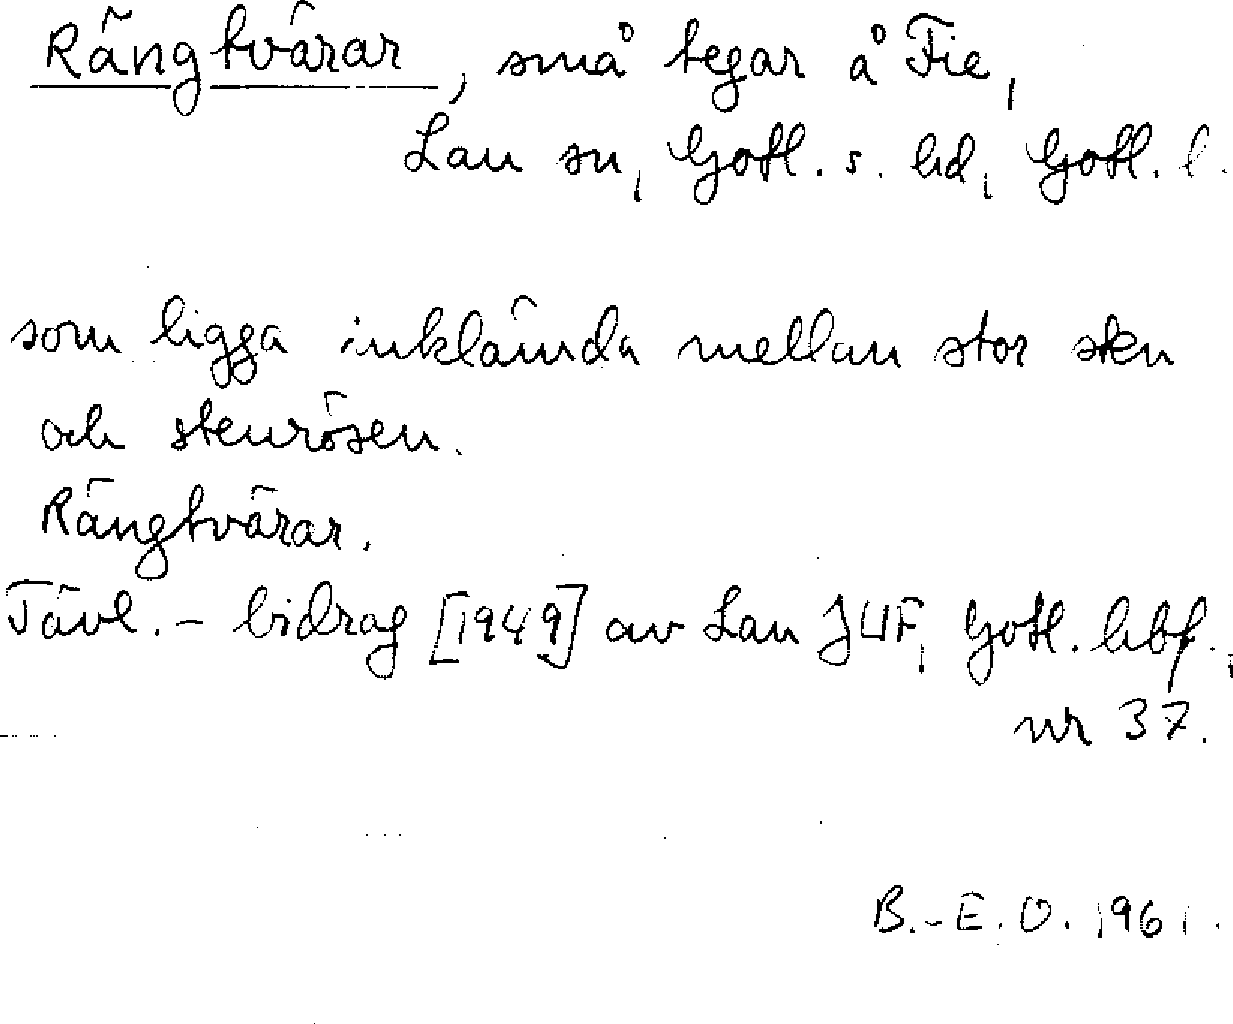 Rängtvärar, små tegar å Fie,
Lau sn, Gotl. s. hd, Gotl. l.
som ligga inklämda mellan stor sten
och stenrösen.
Rängtvärar.
Tävl.- bidrag [1949] av Lau JUF, Gotl. hbf.,
nr 37.
B.-E. O. 1961.